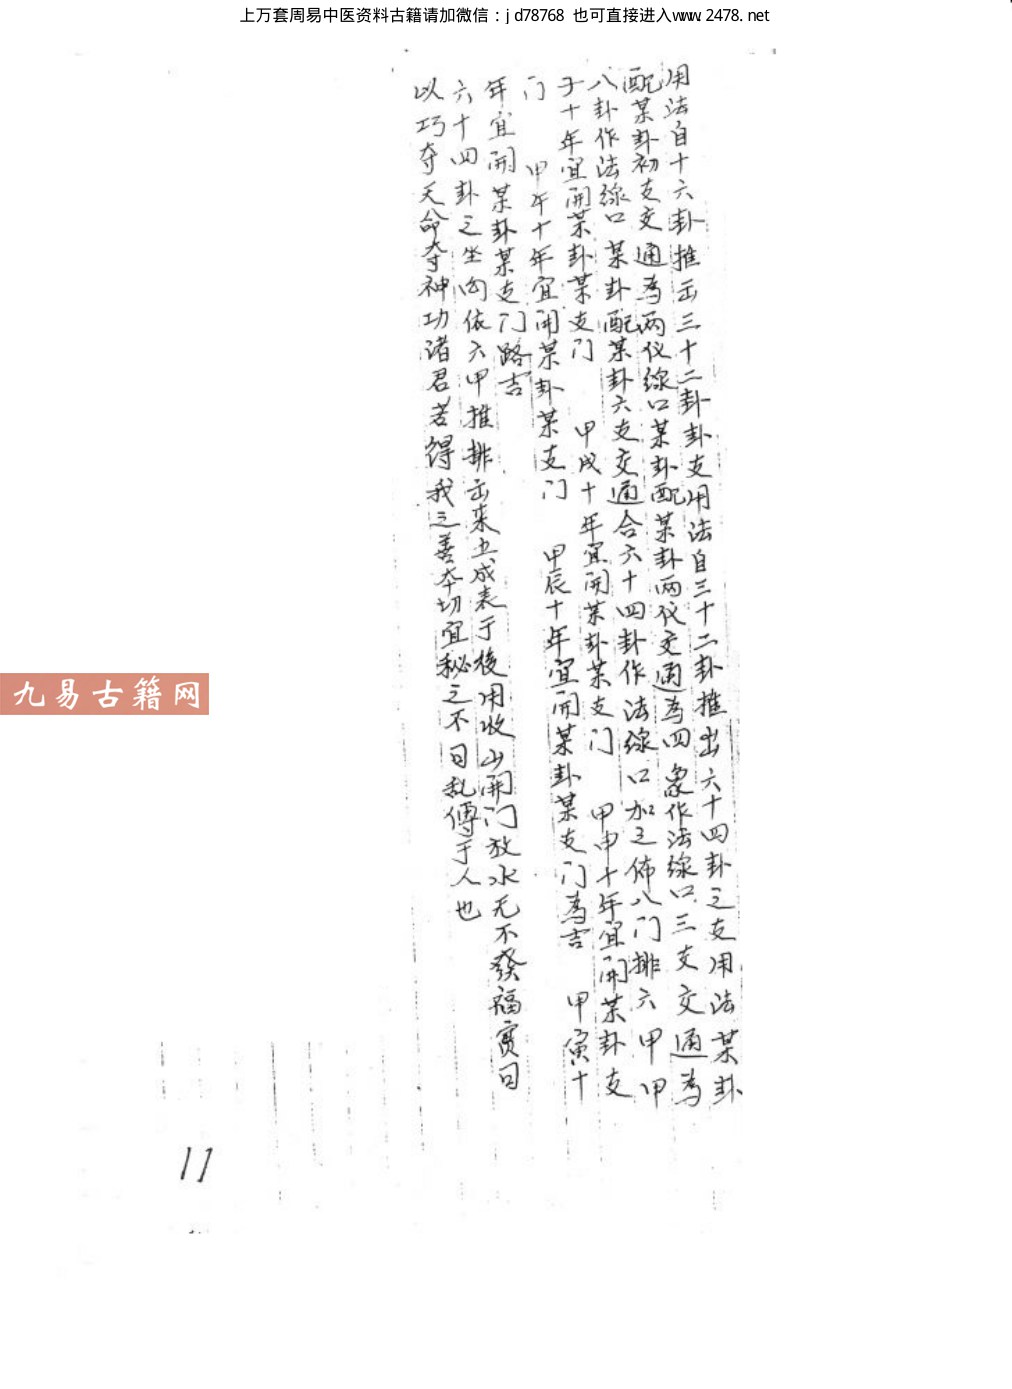 上万套周易中医资料古籍请加微信：jd78768 也可直接进入www.2478.net
用法自十六卦推出三十二卦卦支用法自三十二卦推出六十四卦之支用法某卦
配某卦初支交通為两仪線口某卦配某卦两仪交通為四象作法線口三支交通為
八卦作法線口某卦配某卦六支交通合六十四卦作法線口加之佈八门排六甲甲
子十年宜開某卦某支门 甲戌十年宜開某卦某支门 甲申十年宜開某卦支
门 甲午十年宜開某卦某支门 甲辰十年宜開某卦某支门為吉 甲寅十
年宜開某卦某支门路吉
六十四卦之坐向依六甲推排出来立成表于後用收山開门放水无不發福寔曰
以巧夺天命夺神功诸君若得我之善本切宜秘之不曰乱傳于人也
九易古籍网
11